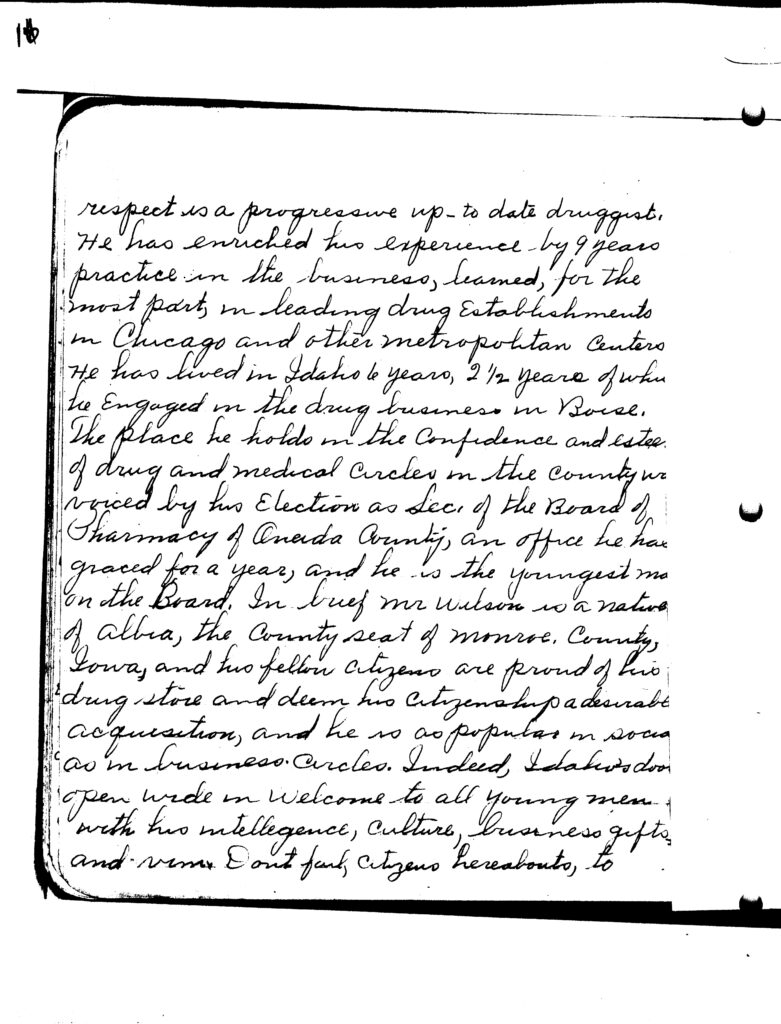 16
respect is a progressive up-to date druggist.
He has enriched his experience by 9 years
practice in the business, learned, for the
most part, in leading drug Establishments
in Chicago and other metropolitan Centers
He has lived in Idaho 6 years, 2 1/2 years of whi
he Engaged in the drug business in Boise.
The place he holds in the Confidence and estee
of drug and medical Circles in the County w
voiced by his Election as Sec. of the Board of
Pharmacy of Oneida County, an office he has
graced for a year, and he is the youngest ma
on the Board. In brief Mr Wilson is a native
of Albia, the County seat of Monroe. County,
Iowa, and his fellow Citizens are proud of his
drug store and deem his Citizenship a desirabl
acquisition, and he is as popular in socia
as in business. Circles. Indeed, Idaho's doo
open wide in Welcome to all young men
with his intellegence, Culture, business gifts,
and vim. Dont fail, Citizens hereabouts, to